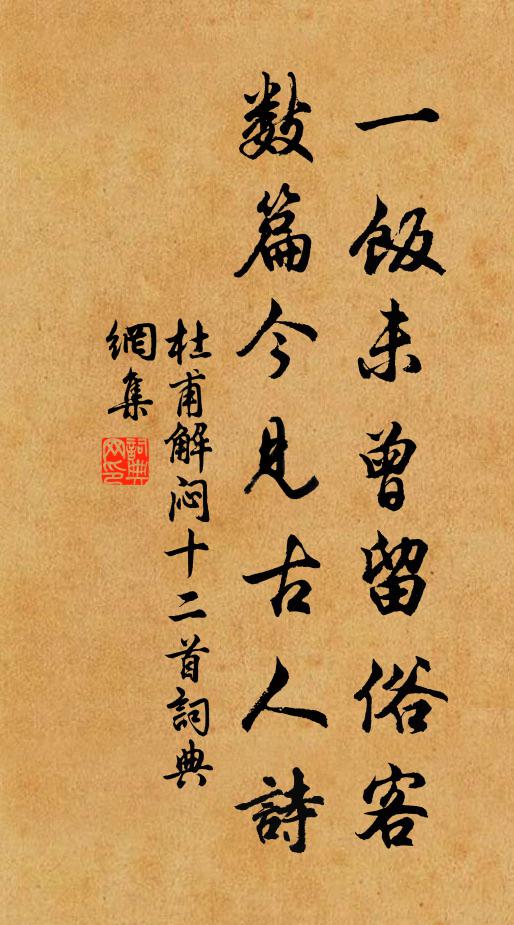 一飯未曾留俗客
數篇今見古人詩
杜甫解悶十二首詞典
網集
詞典
网印